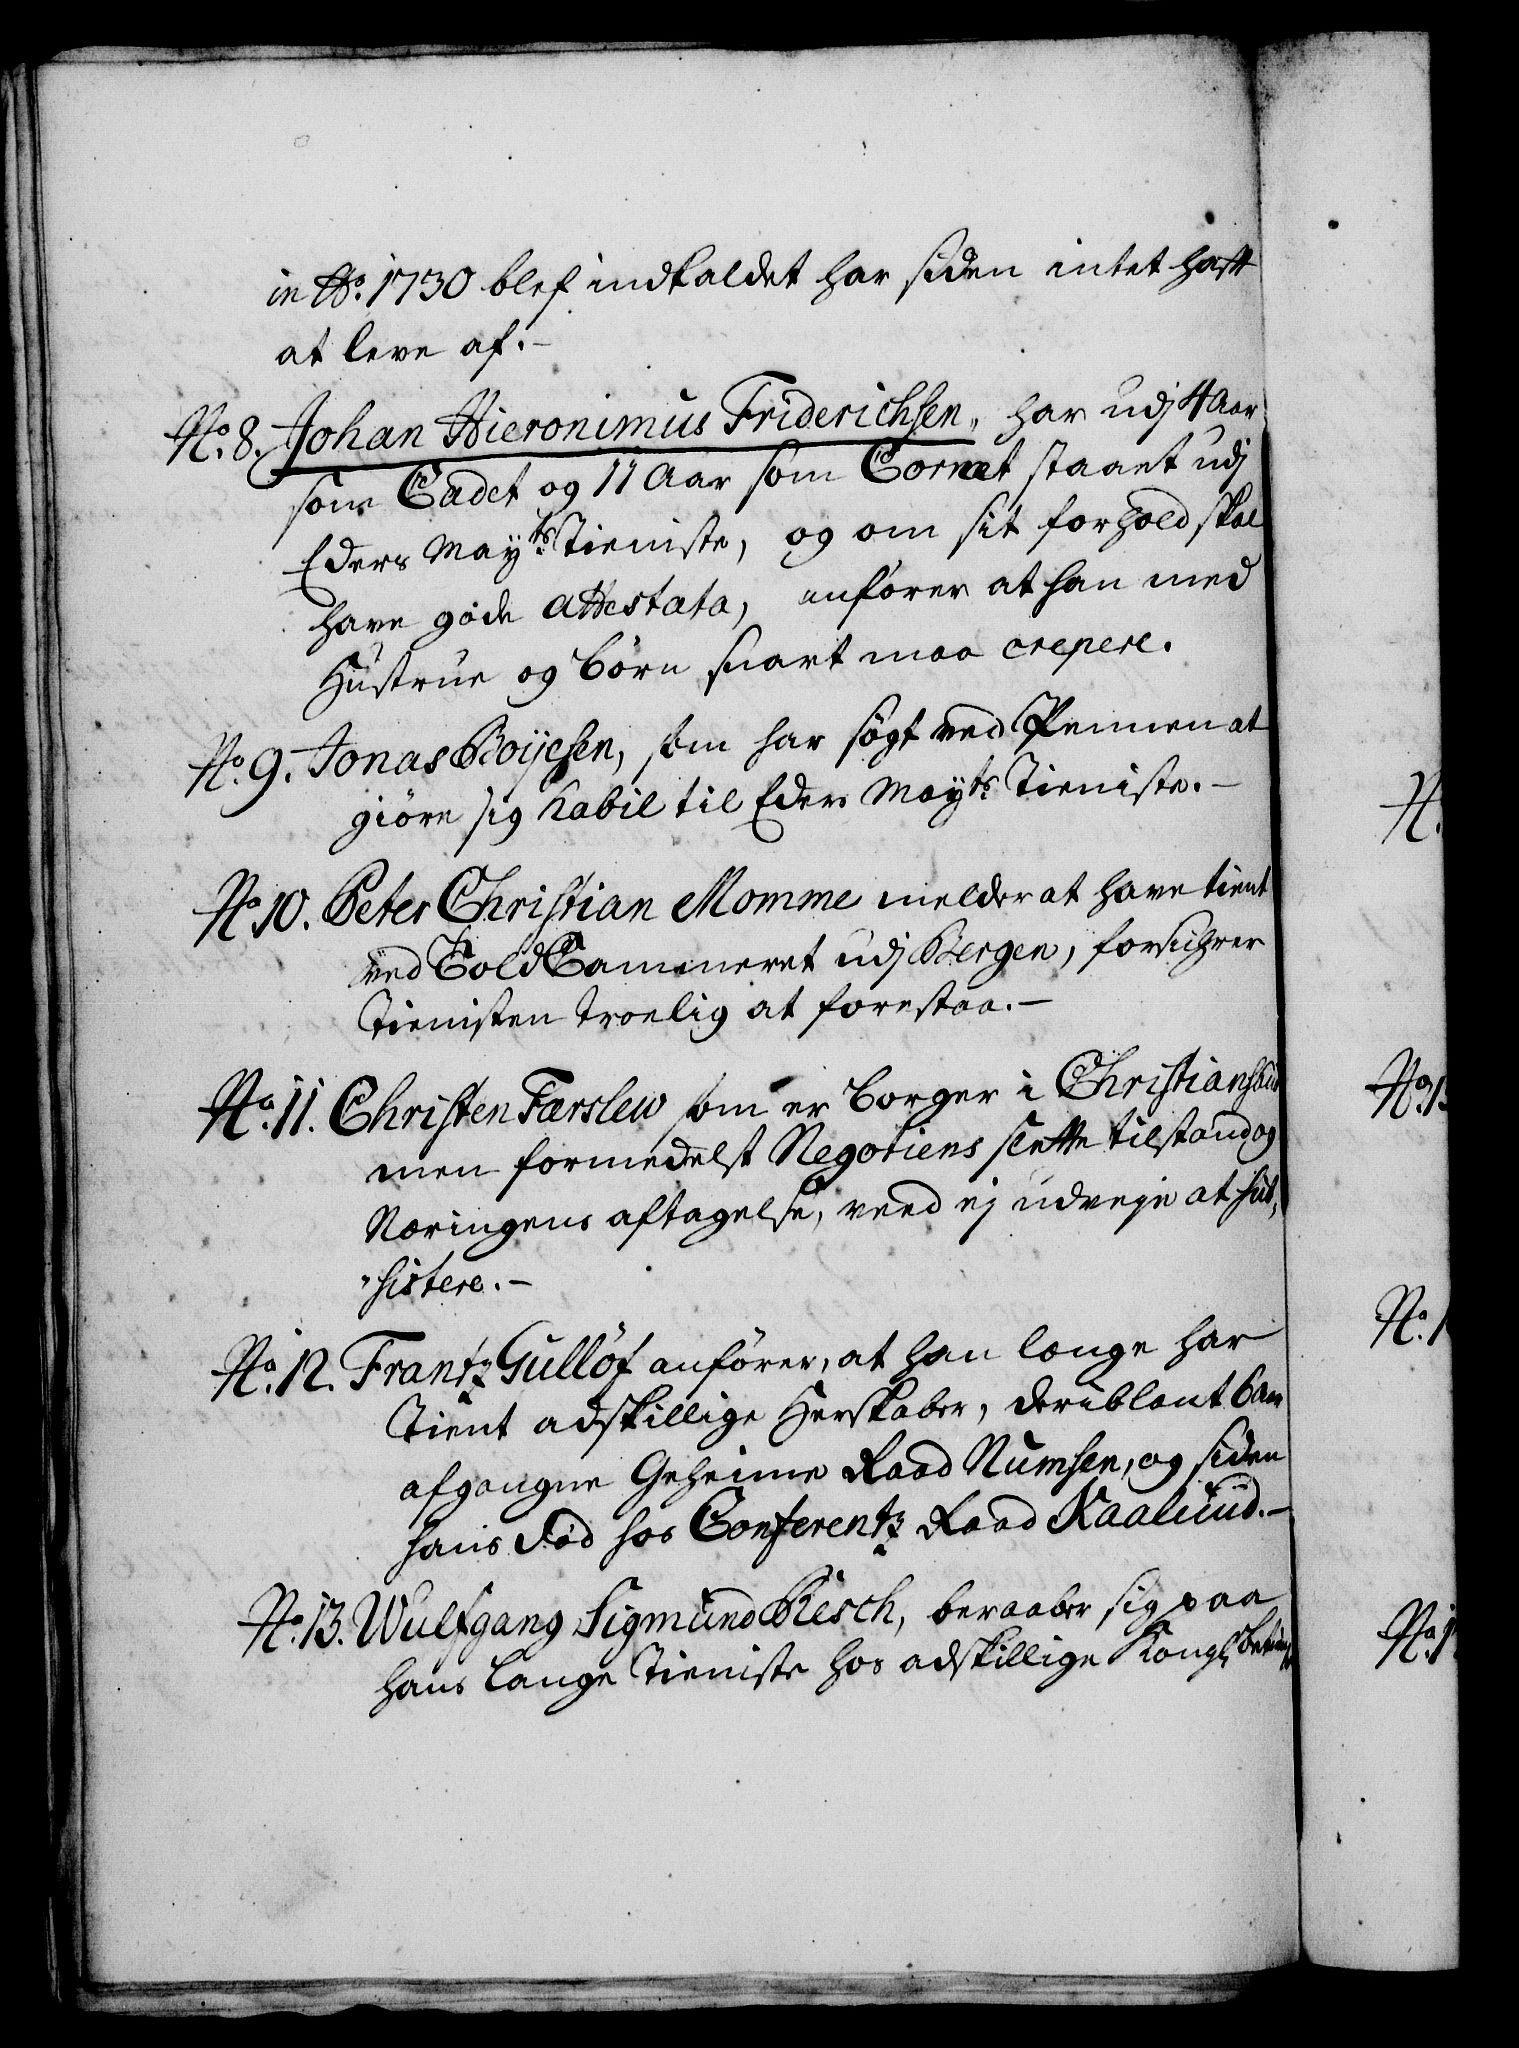 in Ao. 1730 blef indkaldet har siden intet haft
at leve af.-
No. 8. Johan Hieronimus Friderichsen, har udj 4 Aar
som Cadet og 11 Aar som Cornet staaet udj
Eders Mayts. Tieniste, og om sit forhold skal
have gode attestata, anfører at han med
Hustrue og børn snart maa crepere.
No. 9. Jonas Boijesen, som har søgt ved Pennen at
giøre sig habil til Eders Mayts. Tieniste.-
No. 10. Peter Christian Momme melder at have tient
ved Told Cammeret udj Bergen, forsichrer
Tienisten troelig at forestaa.-
No. 11. Christen Færslew som er borger i Christiansand
men formedelst Negotiens slette tilstand og
Næringens aftagelse, veed ej udveje at sub,
"sistere.-
No. 12. Frantz Gulløf anfører, at han længe har
Tient adskillige Herskaber, deriblant
afgangne Geheime Raad Numsen, og siden
hans Død hos Conferentz Raad Kaalund.-
No. 13. Wulfgang Sigmund Riesch, beraaber sig paa
hans lange Tieniste hos adskillige Kongl.
N.
No. 1
No. 1
No. 1